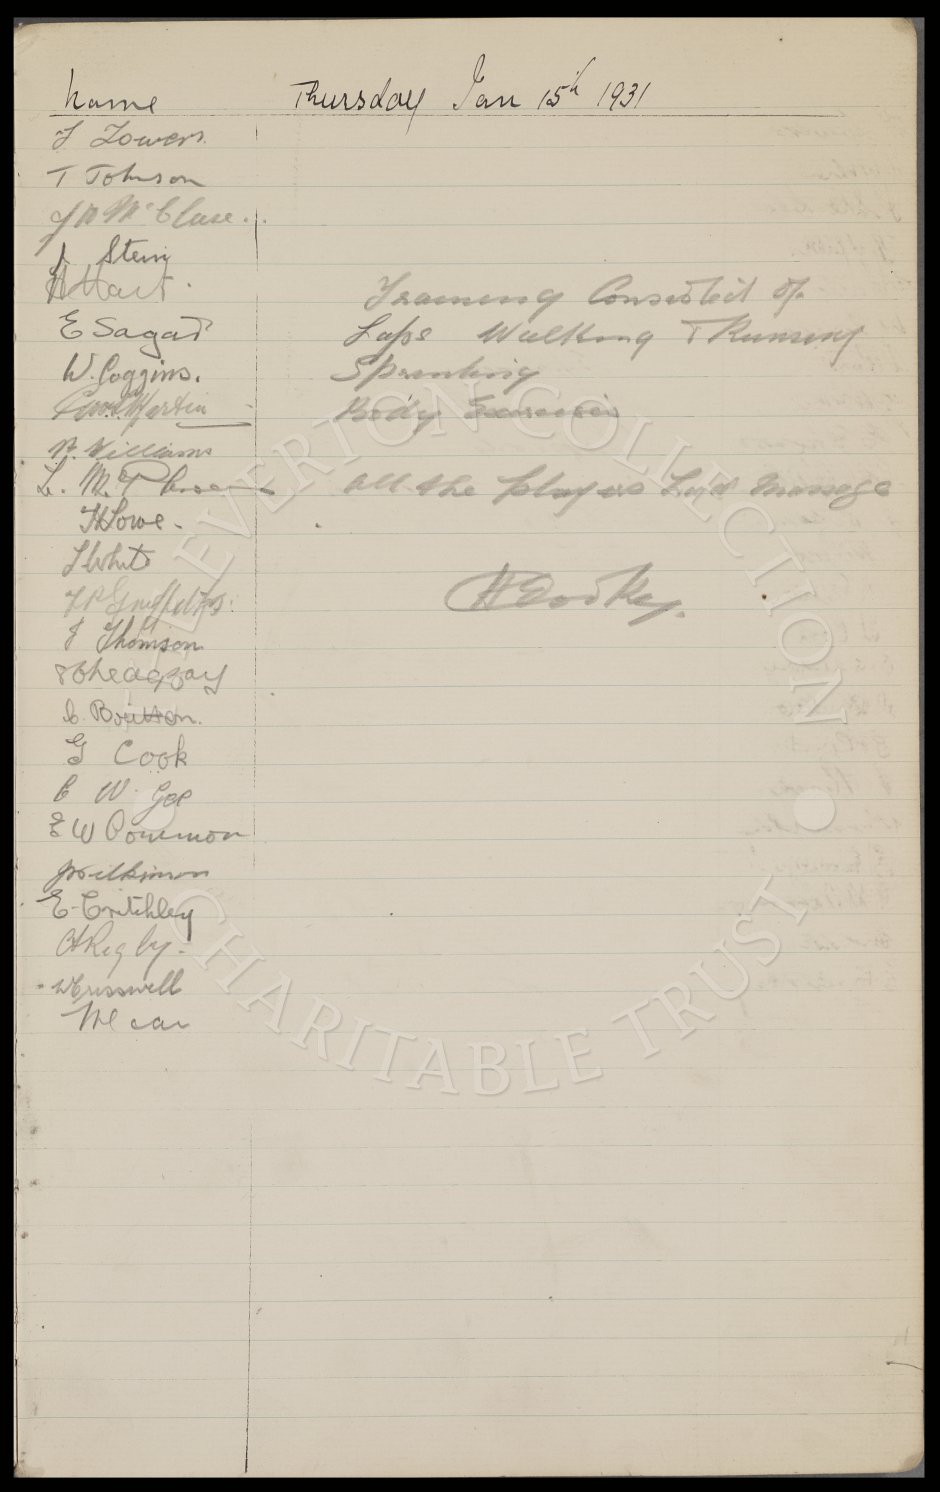 Name Thursday Jan 15th 1931
J Towers
T Johnson
J H McClure
J Stein
H Hart
E Sagar
W. Coggins.
Martin
B. Williams
L. M.
H Lowe
T White
T P Griffiths
J Thomson
C. Britton.
G Cook
C W Gee
E W Common
J Wilkinson
E Critchley
A Rigby
W Cresswell
Training Consisted of
Laps Walking & Runing
Sprinting
Body Exercises
All the players had massage
H Cooke.
EVERTON COLLECTION
CHARITABLE TRUST